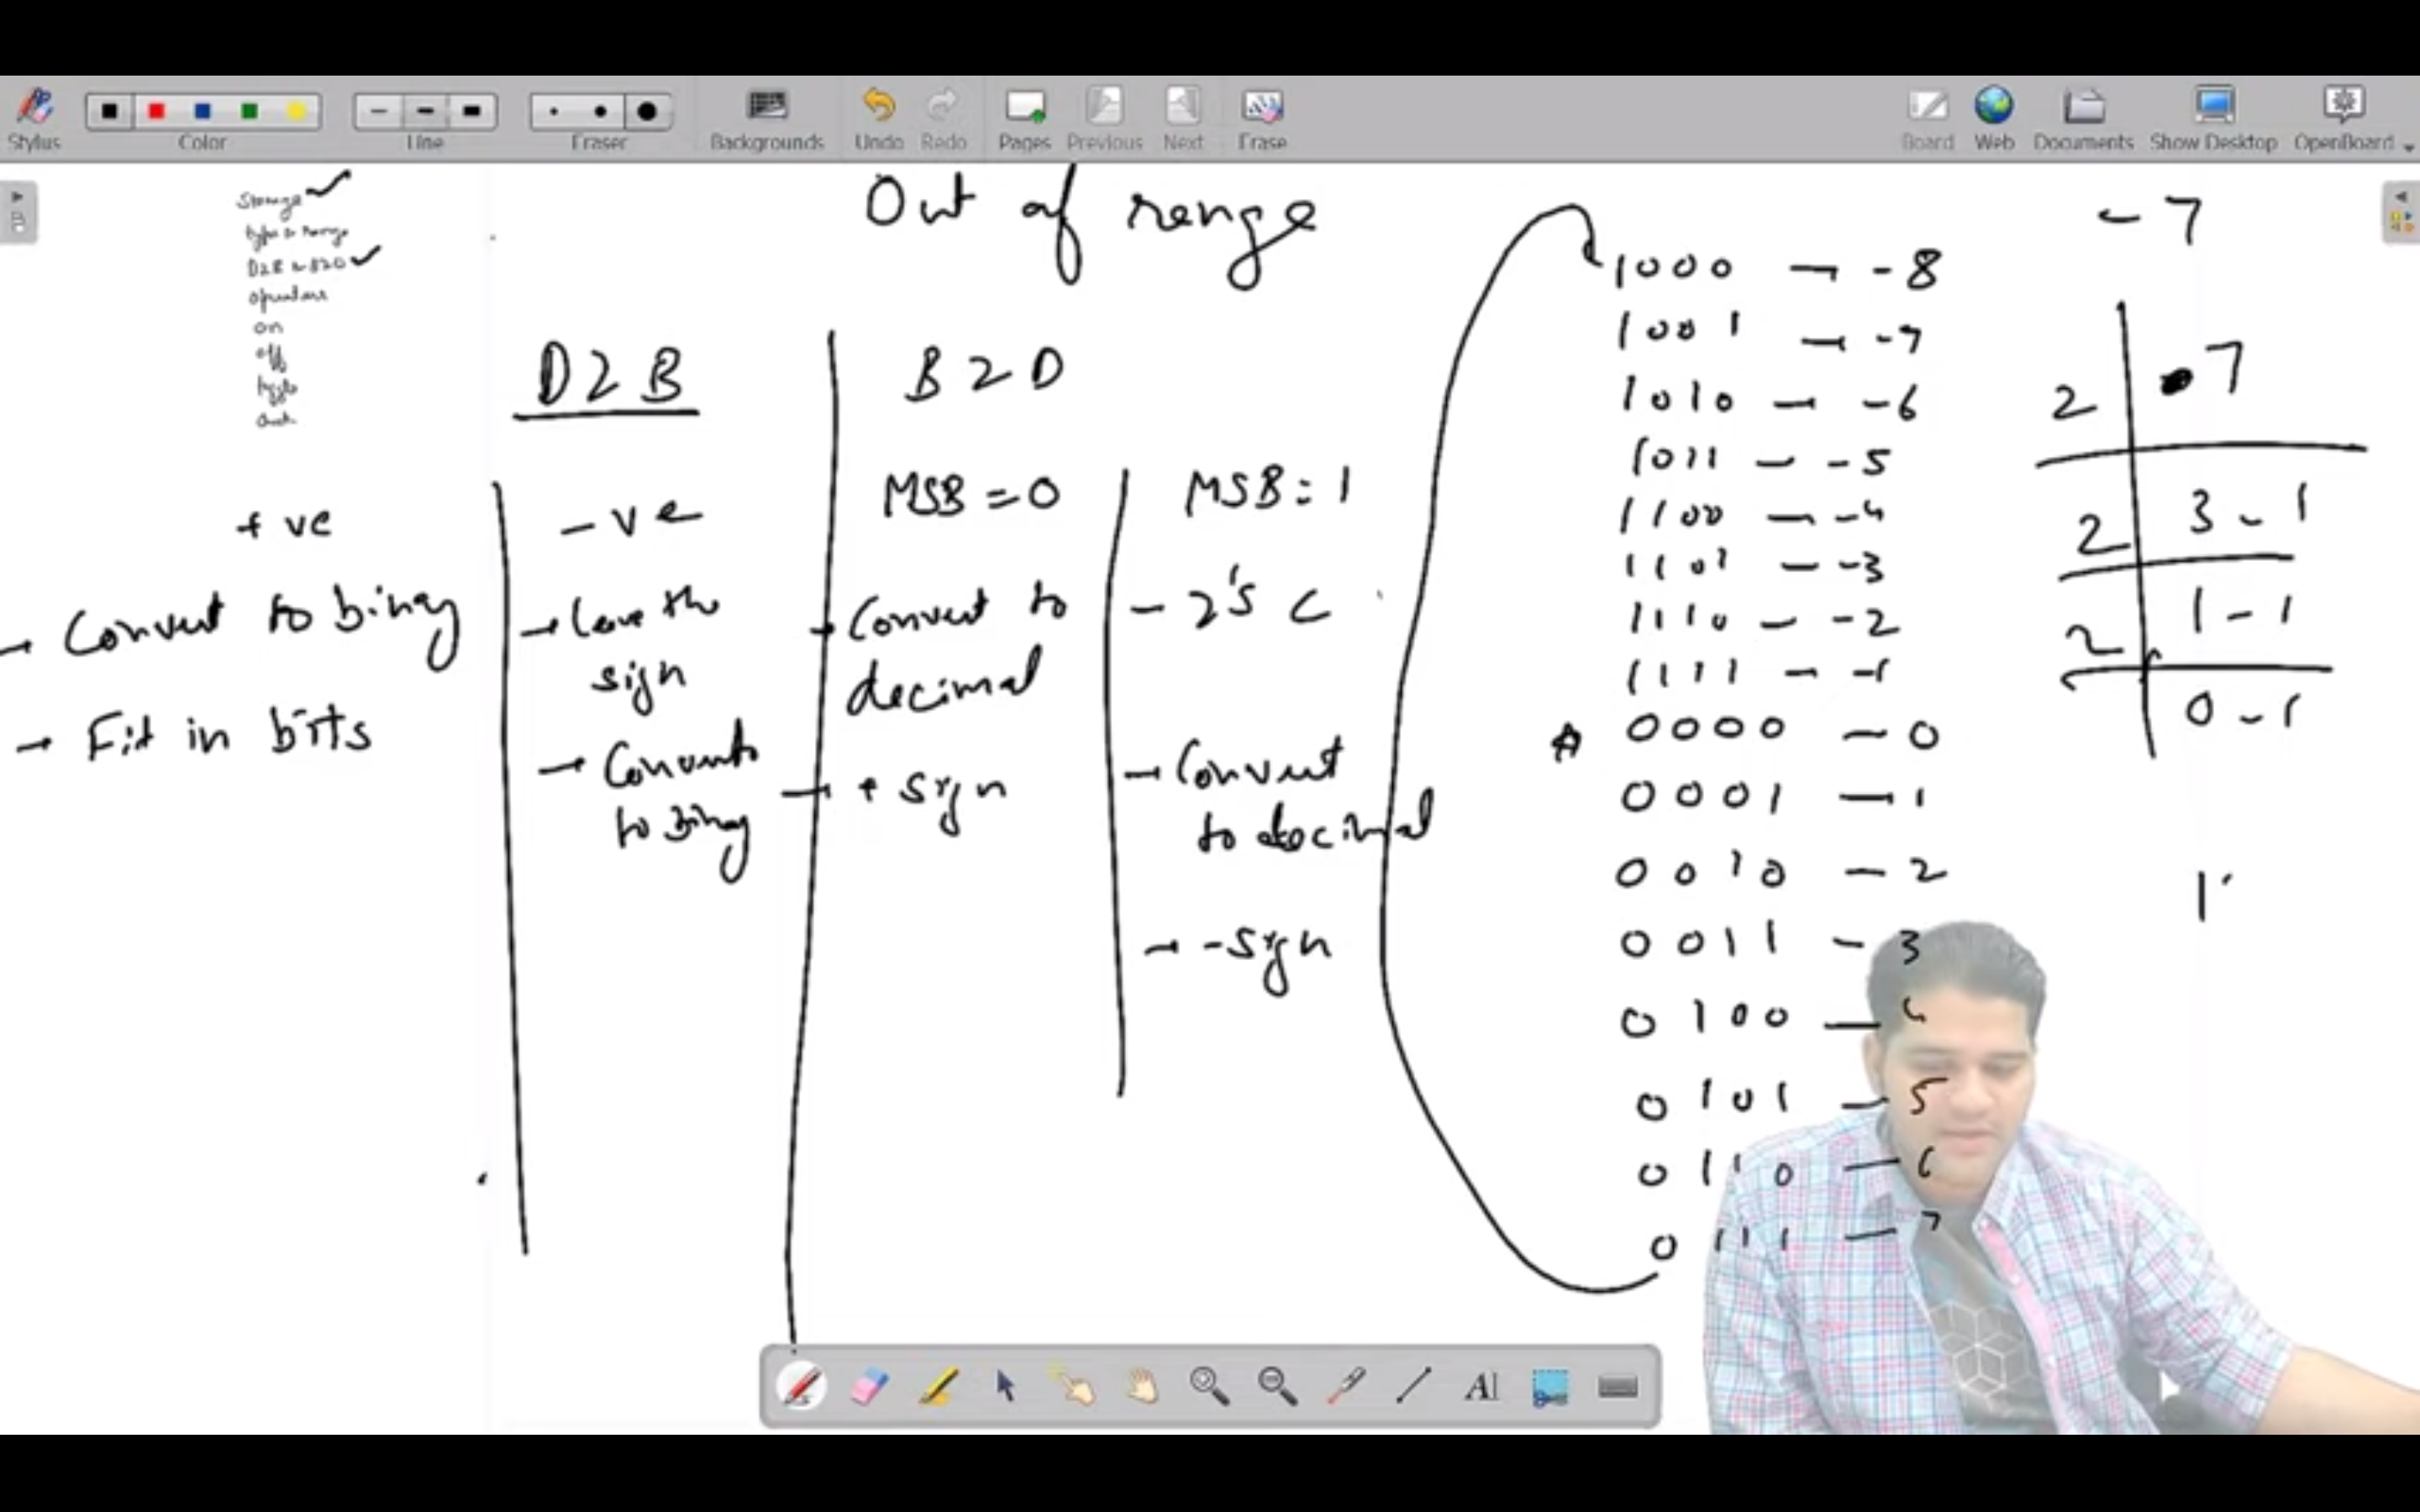 Stylus
Color
Line
Eraser
Backgrounds
Undo
Redo
Pages
Previous
Next
Erase
Board
Web
Documents
Show Desktop
OpenBoard
B
Storage
type & range
D2B & B2D
operators
on
off
toggle
Out of range
D2B
+ve
→ Convert to binay
→ Fit in bits
-ve
→ leave the
sign
→ Convert
to binay
B2D
MSB = 0
→ Convert to
decimal
→ + sign
MSB = 1
- 2's C
→ Convert
to decimal
→ - sign
1000 — -8
1001 — -7
1010 — -6
1011 — -5
1100 — -4
1101 — -3
1110 — -2
1111 — -1
0000 — 0
0001 — 1
0010 — 2
0011 — 3
0100 — 4
0101 — 5
0110 — 6
0111 — 7
-7
2 7
2 3 - 1
2 1 - 1
0 - 1
1
AI